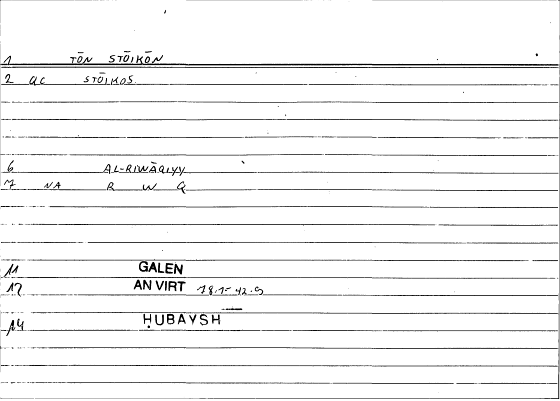 1 TŌN STŌIKŌN
2 QC STŌIKOS
6 AL-RIWĀQIYY
7 NA R W Q
11 GALEN
12 AN VIRT
14 ḤUBAYSH